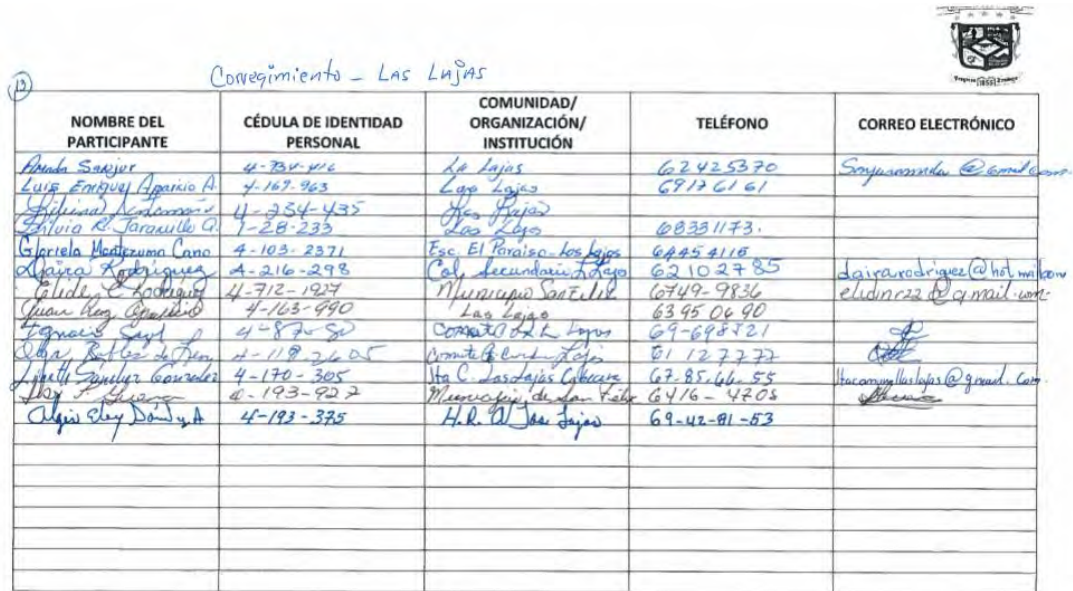 13 Corregimiento - LAS LAJAS
NOMBRE DEL PARTICIPANTE CÉDULA DE IDENTIDAD PERSONAL COMUNIDAD/ ORGANIZACIÓN/ INSTITUCIÓN TELÉFONO CORREO ELECTRÓNICO
Amada Sanjur 4-734-416 La Lajas 62425370
Luis Enrique Aparicio A. 4-169-963 Las Lajas 69176161
4-234-435 Las Lajas
Silvia R. Jaramillo Q. 7-28-233 Las Lajas 68331173.
Gloriela Montezuma Cano 4-103-2371 Esc. El Paraiso-Las Lajas 64454116
Daira Rodriguez 4-216-298 Col. Secundario L. Lajas 62102785 dairarodriguez@hotmail.com
Elide E. Rodriguez 4-712-1927 Municipio San Felix 6749-9836 elidinr22@gmail.com
Juan Ruiz Aparicio 4-163-990 Las Lajas 63950690
Ignacio 69-698821
de Leon 61127777
Lizeth Sánchez González 4-170-305 Jta C. Las Lajas 67.85.66.55 Jtacomunllaslajas@gmail.com.
Guerra 4-193-927 Municipio de San Félix 6416-4708
4-193-375 H.R. Las Lajas 69-42-81-53